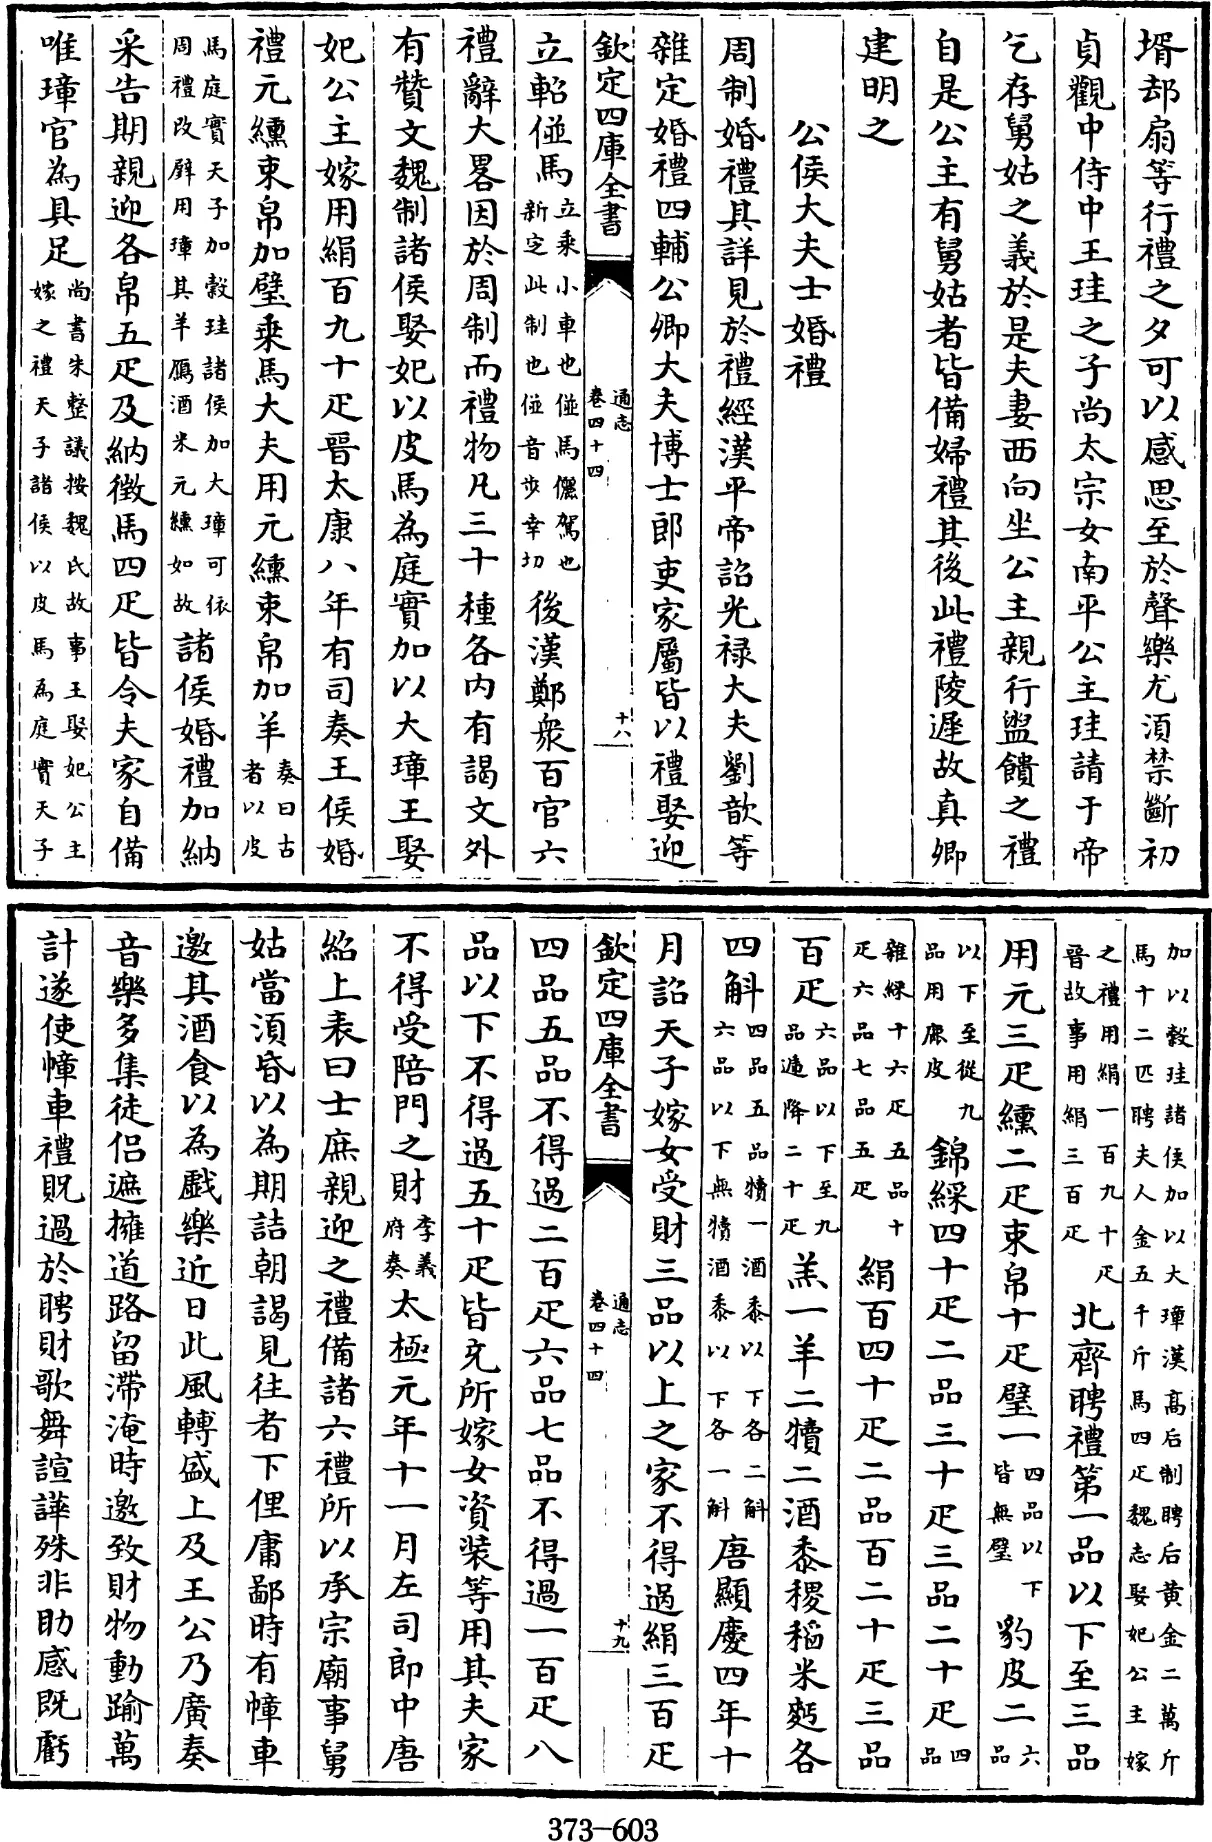 壻却扇等行禮之夕可以感思至於聲樂尤湏禁斷初
貞觀中侍中王珪之子尚太宗女南平公主珪請于帝
乞存舅姑之義於是夫妻西向坐公主親行盥饋之禮
自是公主有舅姑者皆備婦禮其後此禮陵遲故真卿
建明之
公侯大夫士婚禮
周制婚禮其詳見於禮經漢平帝詔光禄大夫劉歆等
雜定婚禮四輔公卿大夫博士郎吏家屬皆以禮娶迎
欽定四庫全書
通志
卷四十四
十八
立軺併馬立乘小車也併馬儷駕也
新定此制也併音步幸切後漢鄭衆百官六
禮辭大畧因於周制而禮物凡三十種各内有謁文外
有贊文魏制諸侯娶妃以皮馬為庭實加以大璋王娶
妃公主嫁用絹百九十疋晉太康八年有司奏王侯婚
禮元纁束帛加璧乘馬大夫用元纁束帛加羊奏曰古
者以皮
馬庭實天子加穀珪諸侯加大璋可依
周禮改辟用璋其羊鴈酒米元纁如故諸侯婚禮加納
采告期親迎各帛五疋及納徴馬四疋皆令夫家自備
唯璋官為具足尚書朱整議按魏氏故事王娶妃公主
嫁之禮天子諸侯以皮馬為庭實天子
加以穀珪諸侯加以大璋漢髙后制聘后黄金二萬斤
馬十二匹聘夫人金五千斤馬四疋魏志娶妃公主嫁
之禮用絹一百九十疋
晉故事用絹三百疋北齊聘禮第一品以下至三品
用元三疋纁二疋束帛十疋璧一四品以下
皆無璧豹皮二六
品
以下至從九
品用鹿皮錦綵四十疋二品三十疋三品二十疋四
品
雜綵十六疋五品十
疋六品七品五疋絹百四十疋二品百二十疋三品
百疋六品以下至九
品遞降二十疋羔一羊二犢二酒黍稷稻米麪各
四斛四品五品犢一酒黍以下各二斛
六品以下無犢酒黍以下各一斛唐顯慶四年十
月詔天子嫁女受財三品以上之家不得過絹三百疋
欽定四庫全書
通志
卷四十四
十九
四品五品不得過二百疋六品七品不得過一百疋八
品以下不得過五十疋皆充所嫁女資装等用其夫家
不得受陪門之財李義
府奏太極元年十一月左司郎中唐
紹上表曰士庶親迎之禮備諸六禮所以承宗廟事舅
姑當湏昏以為期詰朝謁見往者下俚庸鄙時有幛車
邀其酒食以為戲樂近日此風轉盛上及王公乃廣奏
音樂多集徒侣遮擁道路留滯淹時邀致財物動踰萬
計遂使幛車禮貺過於聘財歌舞諠譁殊非助感既虧
373-603